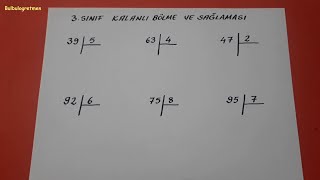 Bulbulogretmen
3. SINIF KALANLI BÖLME VE SAĞLAMASI
39 5 63 4 47 2
92 6 75 8 95 7